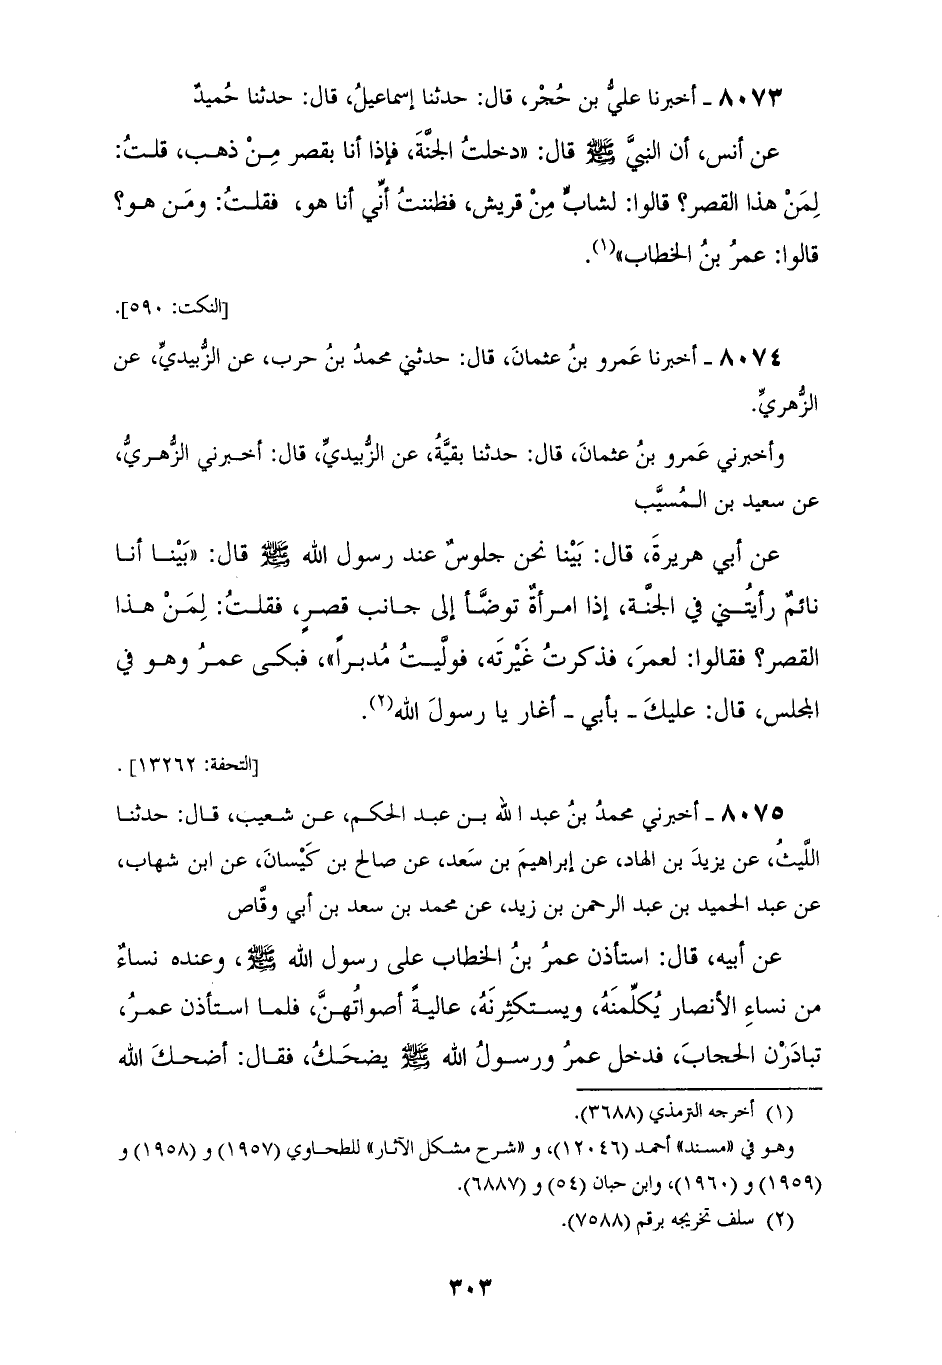 ٨٠٧٣ ـ أخبرنا عليُّ بن حُجْر، قال: حدثنا إسماعيلُ، قال: حدثنا حُميدٌ
عن أنس، أن النبيَّ ﷺ قال: «دخلتُ الجنَّةَ، فإذا أنا بقصر مِنْ ذهب، قلتُ:
لِمَنْ هذا القصر؟ قالوا: لشابٍّ مِنْ قريش، فظننتُ أنِّي أنا هو، فقلتُ: ومَن هو؟
قالوا: عمرُ بنُ الخطاب»(١).
[النكت: ٥٩٠].
٨٠٧٤ ـ أخبرنا عَمرو بنُ عثمانَ، قال: حدثني محمدُ بنُ حرب، عن الزُّبيديِّ، عن
الزُّهريِّ.
وأخبرني عَمرو بنُ عثمانَ، قال: حدثنا بقيَّةُ، عن الزُّبيديِّ، قال: أخبرني الزُّهريُّ،
عن سعيد بن المُسيَّب
عن أبي هريرةَ، قال: بَيْنا نحن جلوسٌ عند رسول الله ﷺ قال: «بَيْنا أنا
نائمٌ رأيتُني في الجنَّة، إذا امرأةٌ توضَّأ إلى جانب قصرٍ، فقلتُ: لِمَنْ هذا
القصر؟ فقالوا: لعمرَ، فذكرتُ غَيْرتَه، فولَّيتُ مُدبراً»، فبكى عمرُ وهو في
المجلس، قال: عليكَ ـ بأبي ـ أغار يا رسولَ الله(٢).
[التحفة: ١٣٢٦٢].
٨٠٧٥ ـ أخبرني محمدُ بنُ عبد الله بن عبد الحكم، عن شعيب، قال: حدثنا
اللَّيثُ، عن يزيدَ بن الهاد، عن إبراهيمَ بن سَعد، عن صالح بن كَيْسانَ، عن ابن شهاب،
عن عبد الحميد بن عبد الرحمن بن زيد، عن محمد بن سعد بن أبي وقَّاص
عن أبيه، قال: استأذن عمرُ بنُ الخطاب على رسول الله ﷺ، وعنده نساءٌ
من نساءِ الأنصار يُكلِّمنَهُ، ويستكثِرنَهُ، عاليةً أصواتُهنَّ، فلما استأذن عمرُ،
تبادَرْن الحجابَ، فدخل عمرُ ورسولُ الله ﷺ يضحَكُ، فقال: أضحكَ الله
(١) أخرجه الترمذي (٣٦٨٨).
وهو في «مسند» أحمد (١٢٠٤٦)، و «شرح مشكل الآثار» للطحاوي (١٩٥٧) و (١٩٥٨) و
(١٩٥٩) و (١٩٦٠)، وابن حبان (٥٤) و (٦٨٨٧).
(٢) سلف تخريجه برقم (٧٥٨٨).
٣٠٣